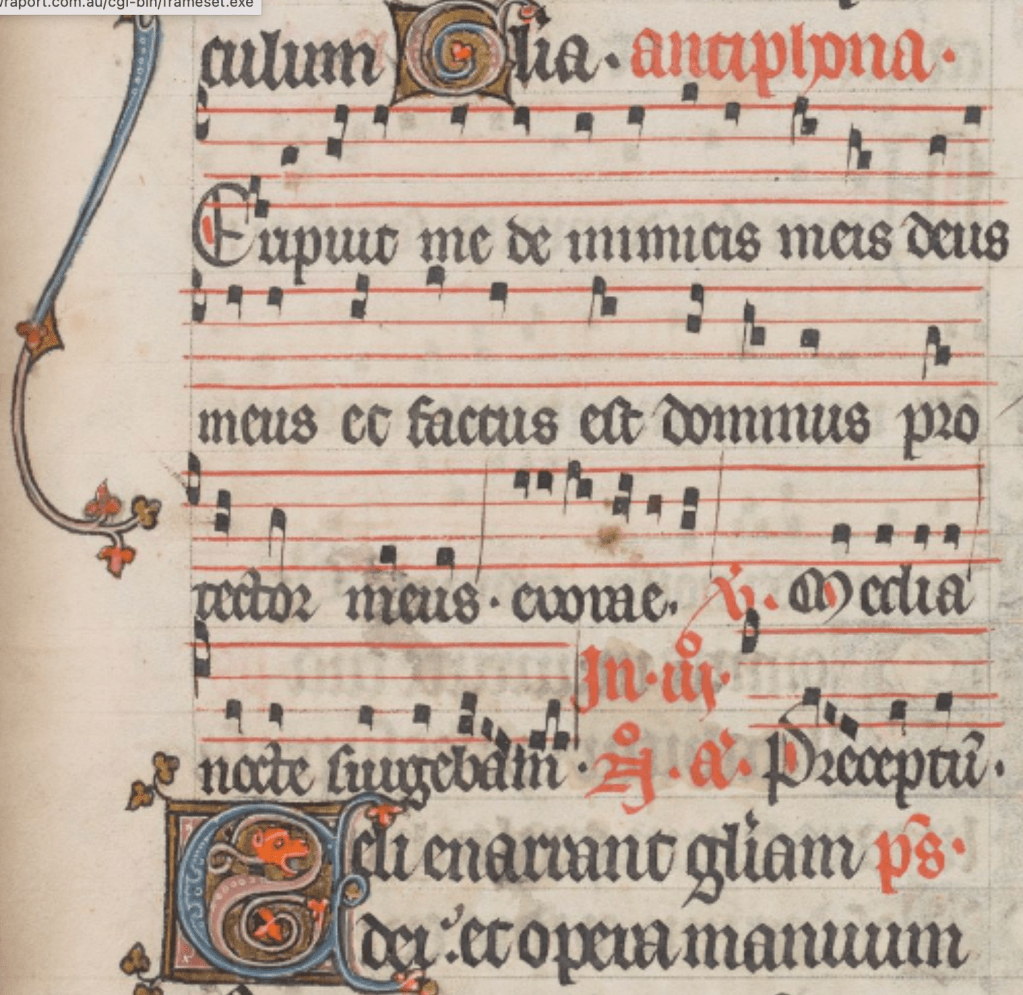 raport.com.au/cgi-bin/frameset.exe
culum Glia. antiphona.
Eripuit me de inimicis meis deus
meus et factus est dominus pro
tector meus. euouae. Media
nocte surgebam. In. Preceptū.
Celi enarrant gliam ps.
dei: et opera manuum